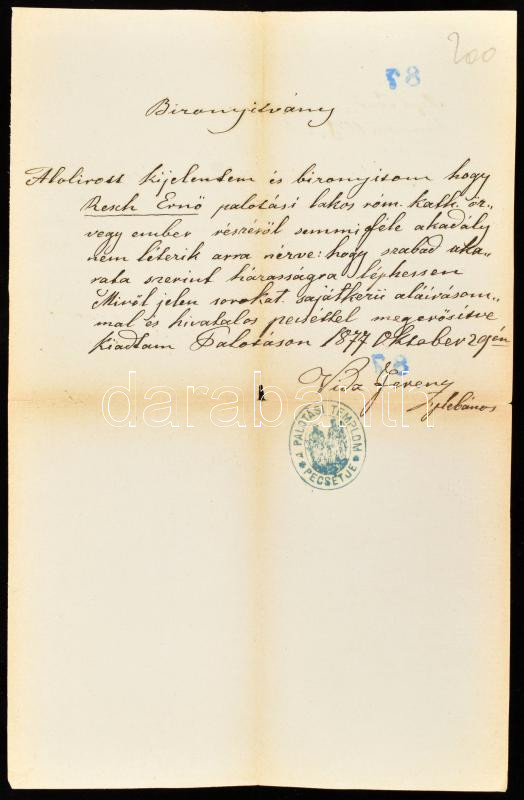 200
87
Bizonyitvány
Alolirott kijelentem és bizonyitom hogy
Resch Ernő palotási lakos róm. kath. öz-
vegy ember részéről semmiféle akadály
nem létezik arra nézve: hogy szabad aka-
rata szerint házasságra léphessen
Miről jelen sorokat sajátkezü aláirásom-
mal és hivatalos pecséttel megerősitve
kiadtam Palotáson 1877 Oktober 29én
87
Vida Ferency
plebános
darabanth
A PALOTÁSI TEMPLOM
PECSÉTJE